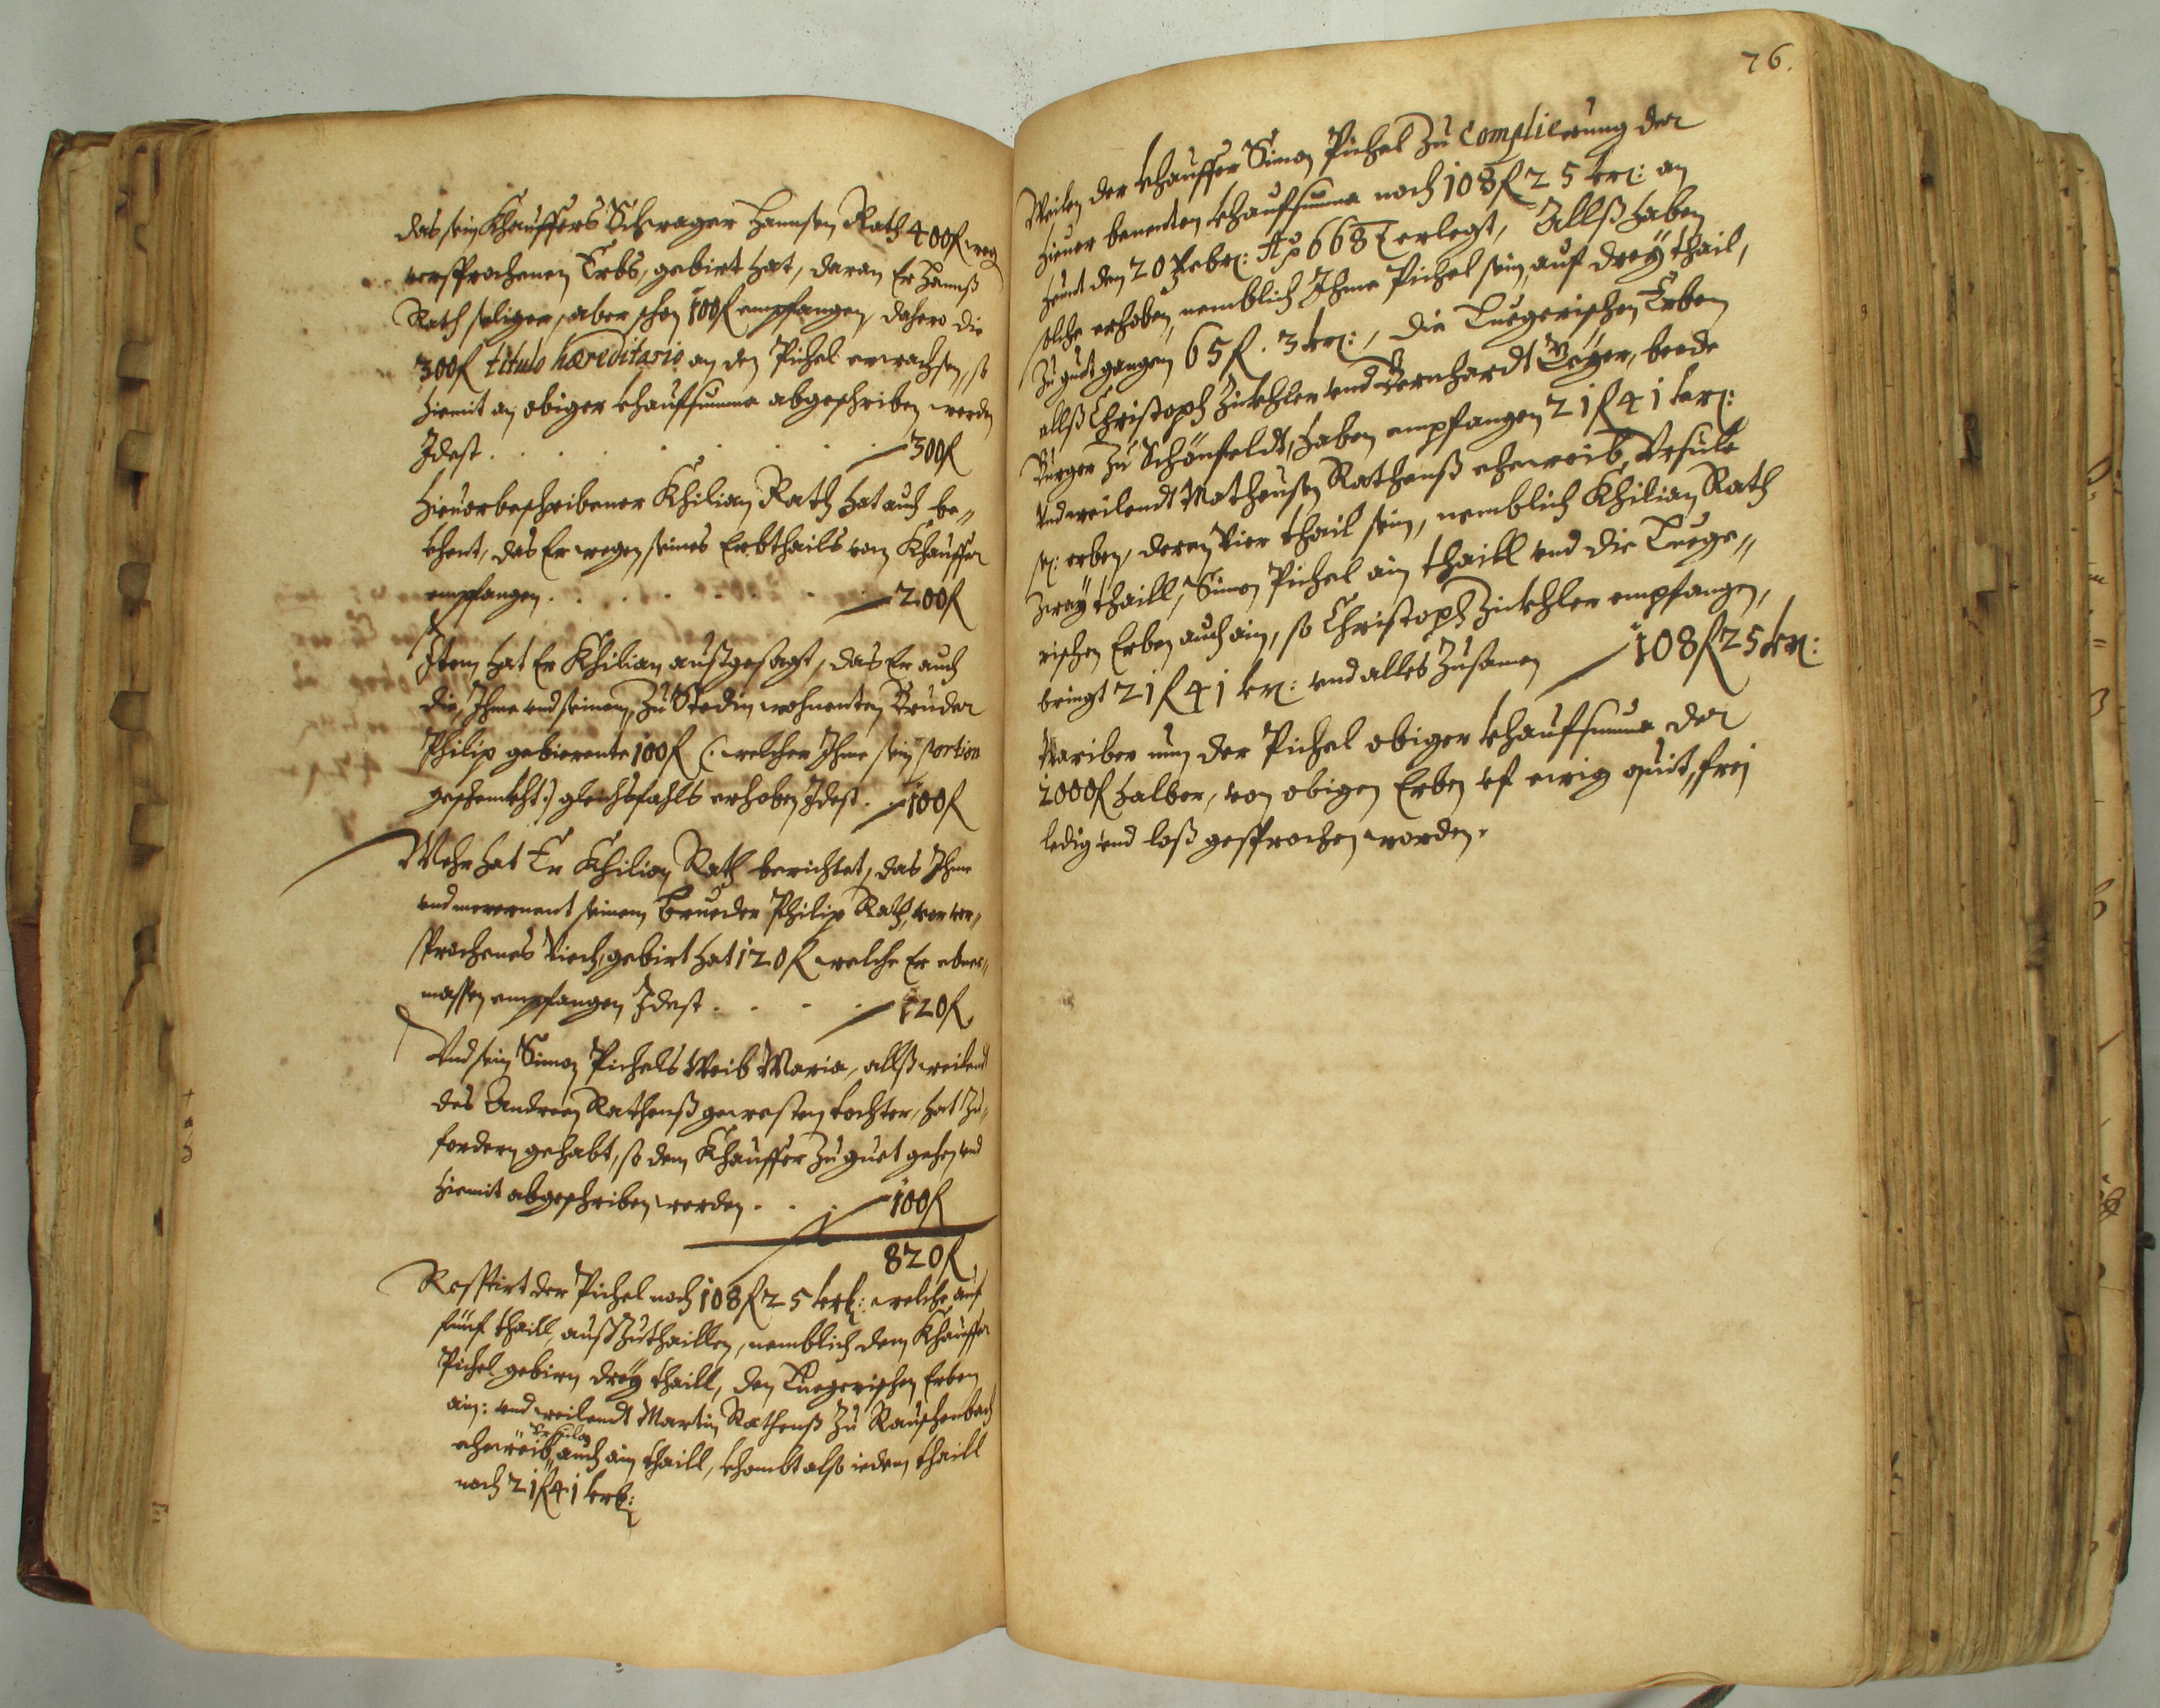 das sein Khauffers Schwager Hannsen Rath 400f weg
versprochenen Erbs, gebirt hat, daran Er Hannß
Rath seliger, aber schon 100f empfangen, dahero die
300f titulo hæreditario an den Pichel erwachsen, so
hiemit an obiger khaufsumma abgeschriben werden
Idest . . . . . . 300f
Hieuorbeschribener Khilian Rath hat auch be„
khent, das Er wegen seines Erbthails vom Khauffer
empfangen . . . . . . 200f
Item hat Er Khilian außgesagt, das Er auch
die, Ihme vnd seinem, zu Stedin wohnenten Bruder
Philip gebierente 100f (: welcher Ihme sein portion
geschenkht:) gleichsfahls erhoben Idest . 100f
Mehr hat Er Khilian Rath berichtet, das Ihme
vnd merernent seinem Brueder Philip Rath, vor ver„
sprochenes Viech, gebirt hat 120f welche Er ebner„
massen empfangen Idest . . . . 120f
Vnd sein Simon Pichels Weib Maria, allß weilend
des Andreen Rathenß gewesten tochter, hat zu„
fordern gehabt, so dem Khauffer zu guet gehen vnd
hiemit abgeschriben werden . . . 100f
820f
Resstirt der Pichel noch 108f 25 krz: welche auf
fünf thaill, außzuthaillen, nemblich dem Khauffer
Pichel gebirn drey thaill, den Luegerischen Erben
ain: vnd weilendt Martin Rathenß zu Rauschenbach
Ursula
eheweib, auch ain thaill, khombt also iedem thaill
noch 21f 41 krz:
76.
Weilen der khauffer Simon Pichel zu Complierung der
hieuor benenten khaufsumma noch 108f 25 krz: an
heunt den 20 Febr: Ao 668 erlegt, Allß haben
solche erhoben, nemblich Ihme Pichel sein, auf drey thail,
zu guet gangen 65f. 3 krz:, die Luegerischen Erben
allß Christoph Zickhler vnd Bernhardt Beyer, beede
Burger zu Schönfeldt, haben empfangen 21f 41 krz:
Vnd weilendt Matheusen Rathenß eheweib, Ursula
sel: erben, deren Vier thail sein, nemblich Khilian Rath
zway thaill, Simon Pichel ain thaill vnd die Luege„
rischen Erben auch ain, so Christoph Zickhler empfangen,
bringt 21f 41 krz: vnd alles zusamen 108f 25 krz:
Wariber nun der Pichel obiger khaufsumma der
2000f halber, von obigen Erben vf ewig quit, frej
ledig vnd loß gesprochen worden.